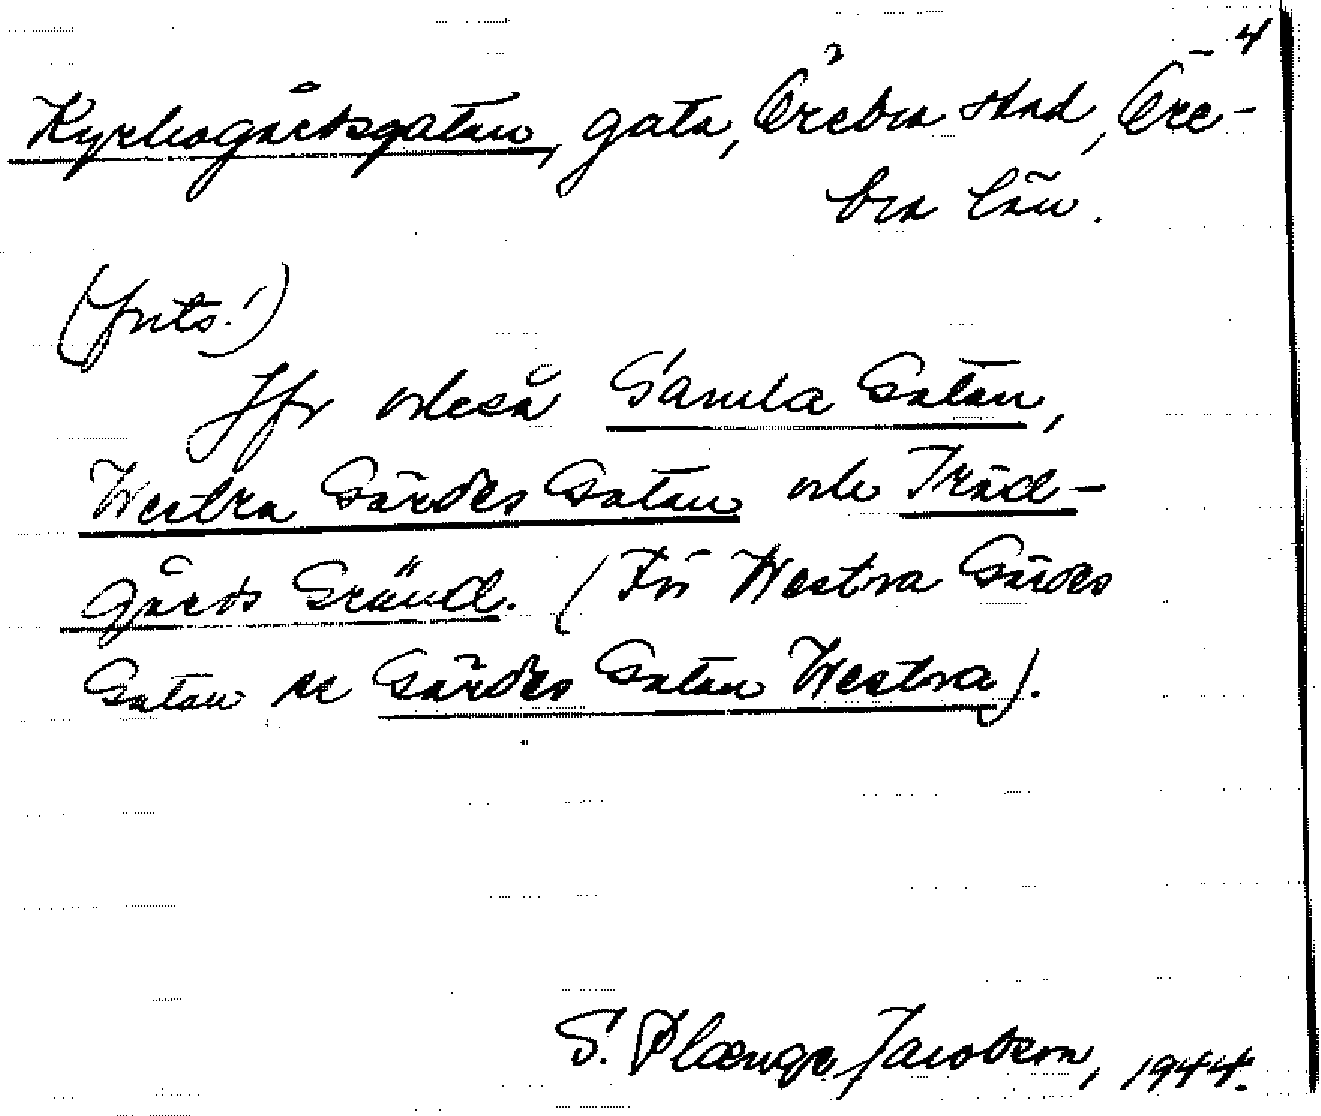 4
Kyrkogårdsgatan, gata, Örebro stad, Öre-
bro län.
(forts.)
Jfr också Gamla Gatan,
Westra Gärdes Gatan och Träd-
gårds Gränd. (För Westra Gärdes
Gatan se Gärdes Gatan Westra).
S. Plænge Jacobson, 1944.